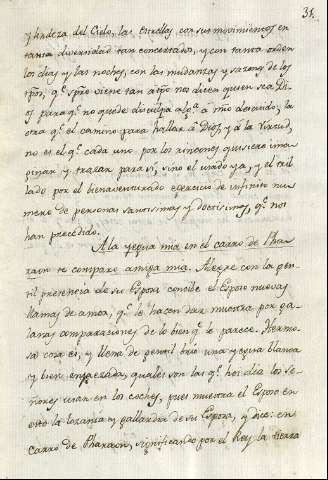 31.
y lindeza del Cielo, las Estrellas, con sus movimientos en
tanta diversidad tan concertados, y con tanta orden
los dias y las noches, con las mudanzas y sazones de los
tpõs, qͤ spre viene tan a tpõ nos dicen quien sea Di-
os para qͤ no quede disculpa
otra qͤ el camino para hallar a Dios, y á la Virtud,
no es el qͤ cada uno por los rincones quisiere ima-
ginar, y trazar para si, sino el usado ya, y el tril
lado por el bienaventurado exercicio de infinito nu
mero de personas santissimas y doctissimas, qͤ nos
han precedido.
A la yegua mia en el carro de Pha-
raon te comparo amiga mia. Alegre con la gen-
til presencia de su Esposa concibe el Esposo nuevas
llamas de amor, qͤ le hacen dar muestra por ga-
lanas comparaciones de lo bien qͤ le parece. Hermo-
sa cosa es, y llena de gentil brio una yegua blanca
y bien enjaezada, quales son las qͤ hoi dia los Se-
ñores usan en los coches, pues muestra el Esposo en
esto la lozania y gallardia de su Esposa, y dice: en
carro de Pharaon, significando por el Rey la tierra